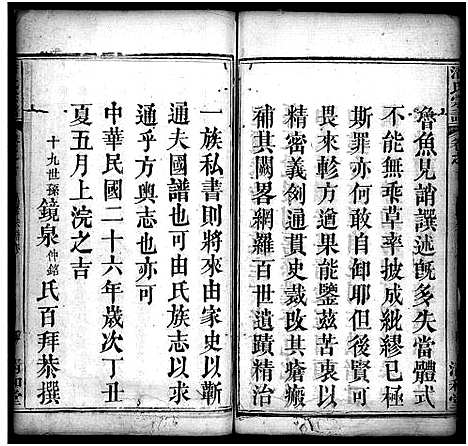 魯魚見誚譔述旣多失當體式
不能無乘草率披成紕繆已極
斯罪亦何敢自卸耶但後賢可
畏來軫方遒而能鑒茲苦衷以
精密義例通貫史裁攺其瘡瘢
補其闕畧網羅百世遺蹟精治
一族私書則將來由家史以蘄
通夫國譜也可由氏族志以求
通乎方輿志也亦可
中華民國二十六年歲次丁丑
夏五月上浣之吉
十九世孫鏡泉仲銘氏百拜恭撰